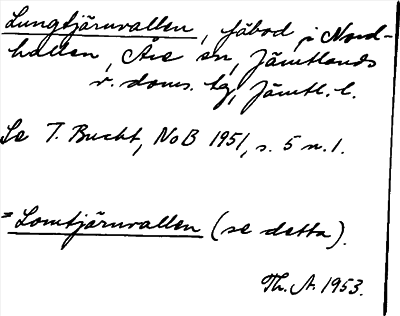 Lungtjärnvallen, fäbod i Nord-
hallen, Åre sn, Jämtlands
v. doms. tg, Jämtl. l.
Se T. Bucht, NoB 1951, s. 5 n. 1.
= Lomtjärnvallen (se detta).
Th. A. 1953.